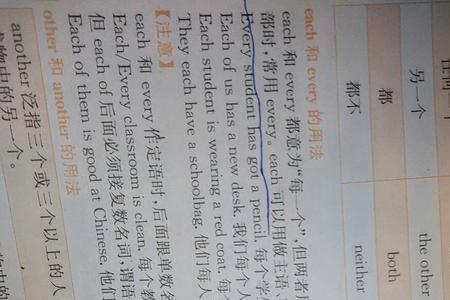 另一个 the other
都 both
都不 neither
each 和 every 的用法
each 和 every 都意为“每一个”,但两者
都时,常用 every。each 可以用做主语、
Every student has got a pencil. 每个学
Each of us has a new desk. 我们每个人
Each student is wearing a red coat. 每
They each have a schoolbag. 他们每人
【注意】
each 和 every 作定语时,后面跟单数名
Each/Every classroom is clean. 每个教
但 each of 后面必须接复数名词,谓语
Each of them is good at Chinese. 他们
other 和 another 的用法
another 泛指三个或三个以上的人
或物中的另一个。